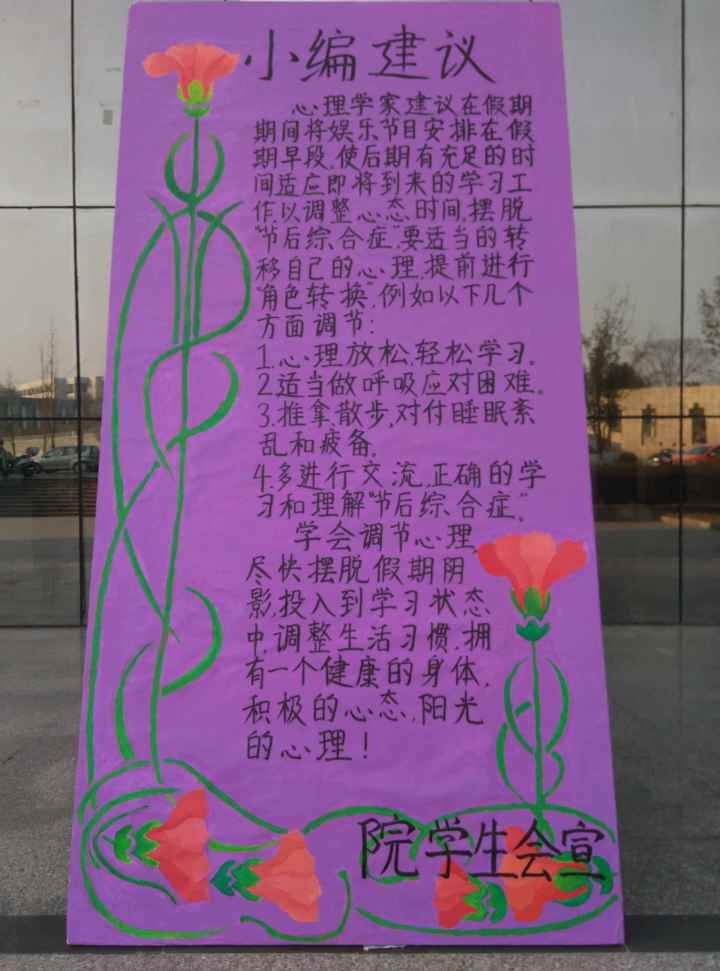 小编建议
心理学家建议在假期
期间将娱乐节目安排在假
期早段,使后期有充足的时
间适应即将到来的学习工
作,以调整心态时间,摆脱
“节后综合症”,要适当的转
移自己的心理,提前进行
“角色转换”,例如以下几个
方面调节:
1.心理放松,轻松学习。
2.适当做呼吸应对困难。
3.推拿散步,对付睡眠紊
乱和疲备。
4.多进行交流,正确的学
习和理解“节后综合症。”
学会调节心理,
尽快摆脱假期阴
影,投入到学习状态
中,调整生活习惯,拥
有一个健康的身体,
积极的心态,阳光
的心理!
院学生会宣